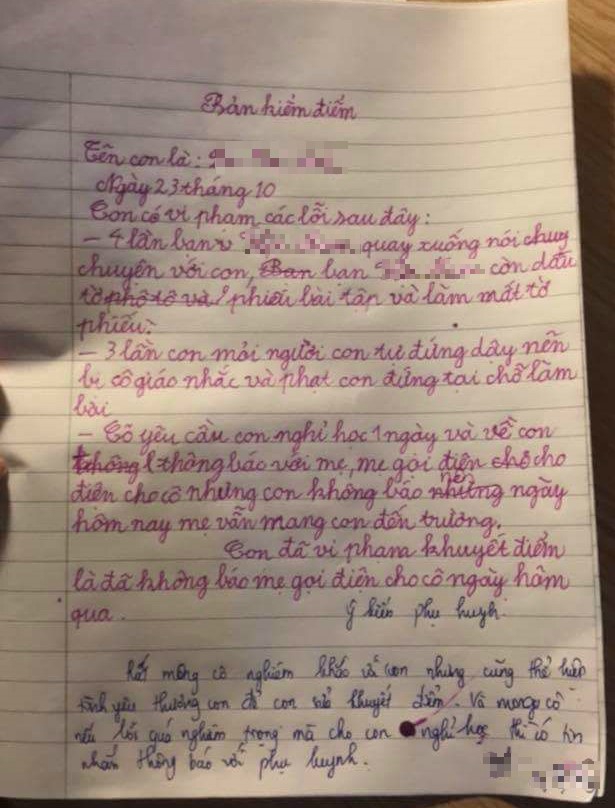 Bản kiểm điểm
Tên con là:
Ngày 23 tháng 10
Con có vi phạm các lỗi sau đây:
- 4 lần bạn quay xuống nói chuyện với con, Bạn bạn còn dấu
tờ phô tô và phiếu bài tập và làm mất tờ
phiếu.
- 3 lần con mỏi người con tự đứng dậy nên
bị cô giáo nhắc và phạt con đứng tại chỗ làm
bài
- Cô yêu cầu con nghỉ học 1 ngày và về con
không thông báo với mẹ, mẹ gọi điện cho
điện cho cô nhưng con không báo những nên ngày
hôm nay mẹ vẫn mang con đến trường.
Con đã vi phạm khuyết điểm
là đã không báo mẹ gọi điện cho cô ngày hôm
qua.
Ý kiến phụ huynh.
Rất mong cô nghiêm khắc với con nhưng cũng thể hiện
tình yêu thương con để con sửa khuyết điểm. Và mong cô
nếu lỗi quá nghiêm trọng mà cho con nghỉ học thì có tin
nhắn thông báo với phụ huynh.